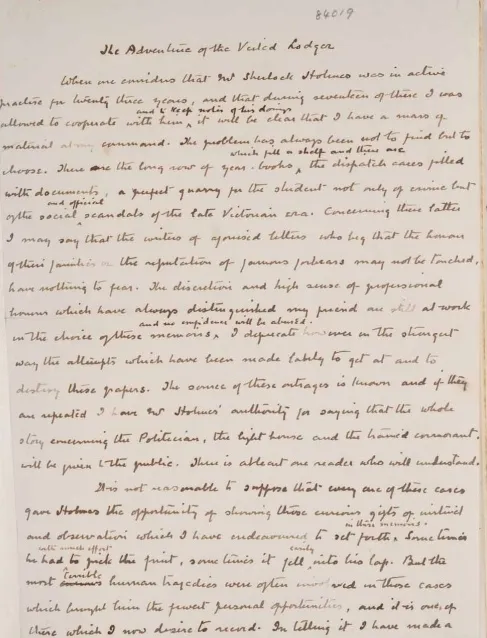 84019
The Adventure of the Veiled Lodger
When one considers that Mr Sherlock Holmes was in active
practice for twenty three years, and that during seventeen of these I was
and to keep notes of his doings
allowed to cooperate with him, it will be clear that I have a mass of
material at my command. The problem has always been not to find but to
which fill a shelf and there are
choose. There are the long row of year-books, the dispatch cases filled
with documents, a perfect quarry for the student not only of crime but
and official
of the social scandals of the late Victorian era. Concerning these latter
I may say that the writers of agonised letters who beg that the honour
of their families or the reputation of famous forbears may not be touched,
have nothing to fear. The discretion and high sense of professional
honour which have always distinguished my friend are still at work
and no confidence will be abused.
in the choice of these memoirs, I deprecate however in the strongest
way the attempts which have been made lately to get at and to
destroy these papers. The source of these outrages is known and if they
are repeated I have Mr Holmes' authority for saying that the whole
story concerning the Politician, the light house and the trained cormorant
will be given to the public. There is at least one reader who will understand.
It is not reasonable to suppose that every one of these cases
gave Holmes the opportunity of showing those curious gifts of instinct
in these memoirs.
and observation which I have endeavoured to set forth. Sometimes
with much effort easily
he had to pick the fruit, sometimes it fell into his lap. But the
terrible
most human tragedies were often involved in those cases
which brought him the fewest personal opportunities, and it is one of
these which I now desire to record. In telling it I have made a